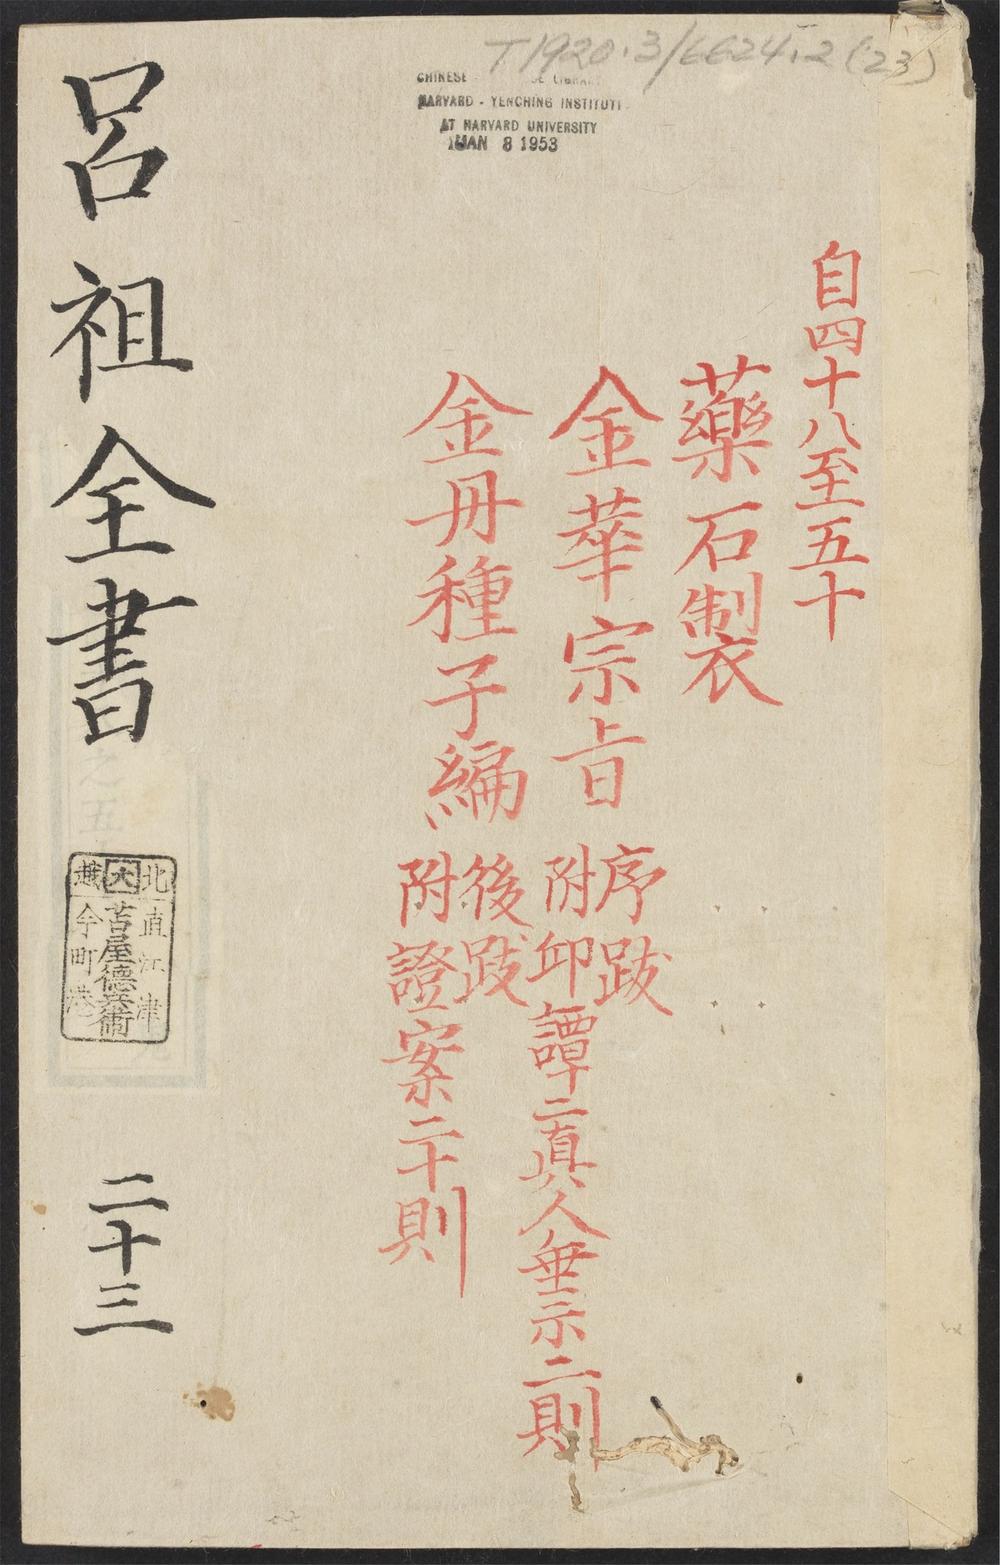 T1920.3/6624.2(23)
HARVARD - YENCHING INSTITUTE
AT HARVARD UNIVERSITY
JAN 8 1953
自四十八至五十
藥石製
金華宗旨
序跋
附邱譚二真人垂示二則
金丹種子編
後跋
附證案二十則
呂祖全書
北大越
直江津
苫屋德兵衛
今町港
二十三